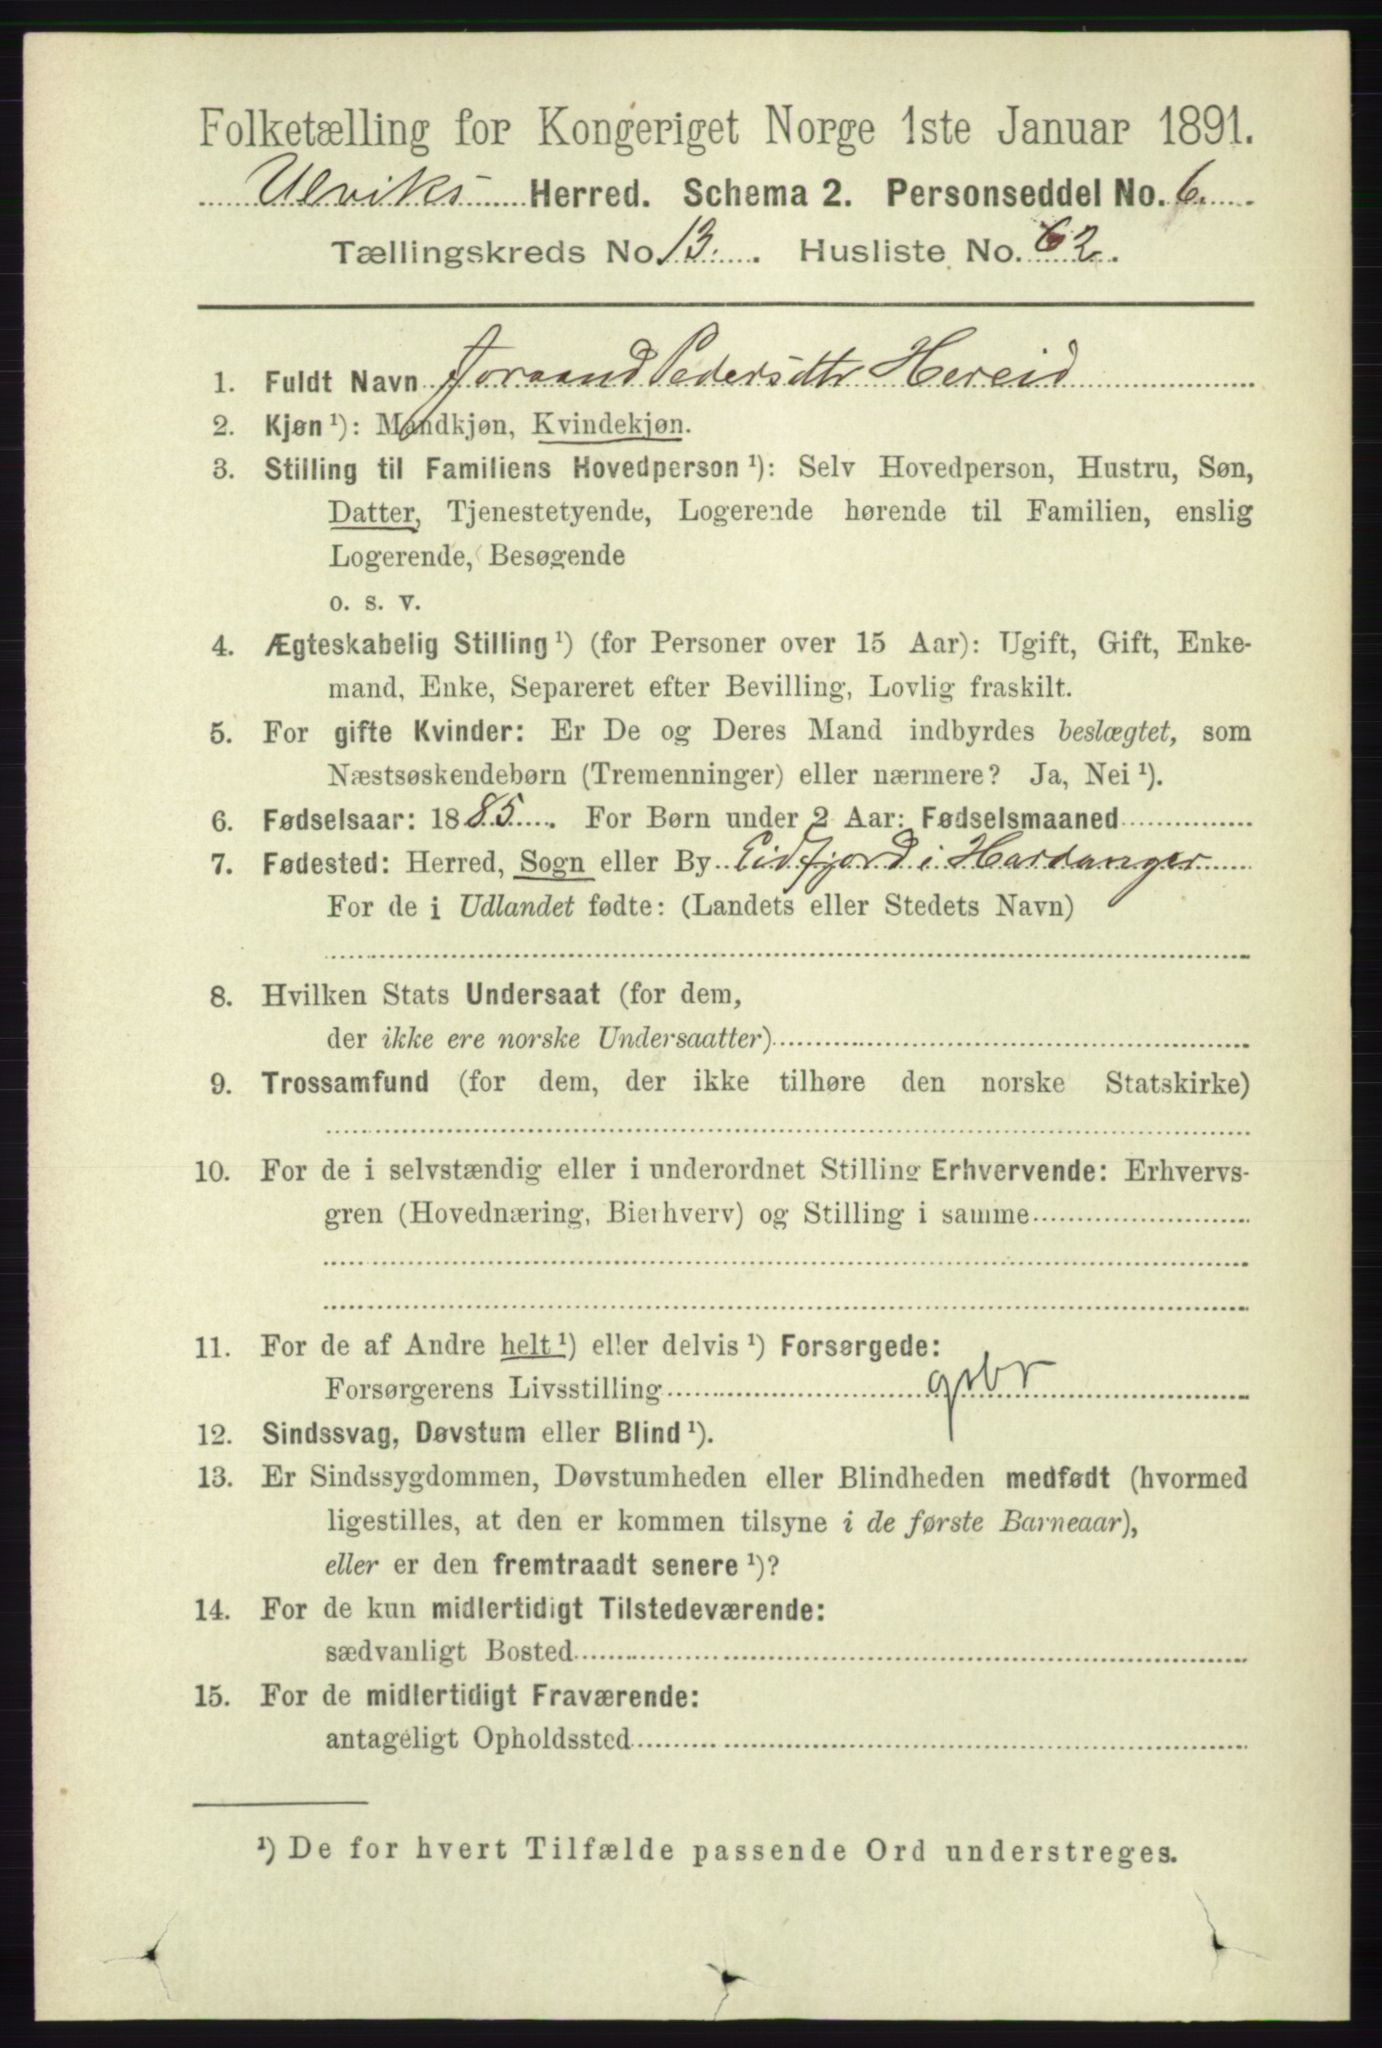 Folketælling for Kongeriget Norge 1ste Januar 1891.
Ulviks Herred. Schema 2. Personseddel No. 6.
Tællingskreds No. 13. Husliste No. 62.
1. Fuldt Navn Joraand Pedersdtr Hereid
2. Kjøn ¹): Mandkjøn, Kvindekjøn.
3. Stilling til Familiens Hovedperson ¹): Selv Hovedperson, Hustru, Søn,
Datter, Tjenestetyende, Logerende hørende til Familien, enslig
Logerende, Besøgende
o. s. v.
4. Ægteskabelig Stilling ¹) (for Personer over 15 Aar): Ugift, Gift, Enke-
mand, Enke, Separeret efter Bevilling, Lovlig fraskilt.
5. For gifte Kvinder: Er De og Deres Mand indbyrdes beslægtet, som
Næstsøskendebørn (Tremenninger) eller nærmere? Ja, Nei ¹).
6. Fødselsaar: 1885. For Børn under 2 Aar: Fødselsmaaned
7. Fødested: Herred, Sogn eller By Eidfjord i Hardanger
For de i Udlandet fødte: (Landets eller Stedets Navn)
8. Hvilken Stats Undersaat (for dem,
der ikke ere norske Undersaatter)
9. Trossamfund (for dem, der ikke tilhøre den norske Statskirke)
10. For de i selvstændig eller i underordnet Stilling Erhvervende: Erhvervs-
gren (Hovednæring, Bierhverv) og Stilling i samme
11. For de af Andre helt ¹) eller delvis ¹) Forsørgede:
Forsørgerens Livsstilling gbr
12. Sindssvag, Døvstum eller Blind ¹).
13. Er Sindssygdommen, Døvstumheden eller Blindheden medfødt (hvormed
ligestilles, at den er kommen tilsyne i de første Barneaar),
eller er den fremtraadt senere ¹)?
14. For de kun midlertidigt Tilstedeværende:
sædvanligt Bosted
15. For de midlertidigt Fraværende:
antageligt Opholdssted
¹) De for hvert Tilfælde passende Ord understreges.